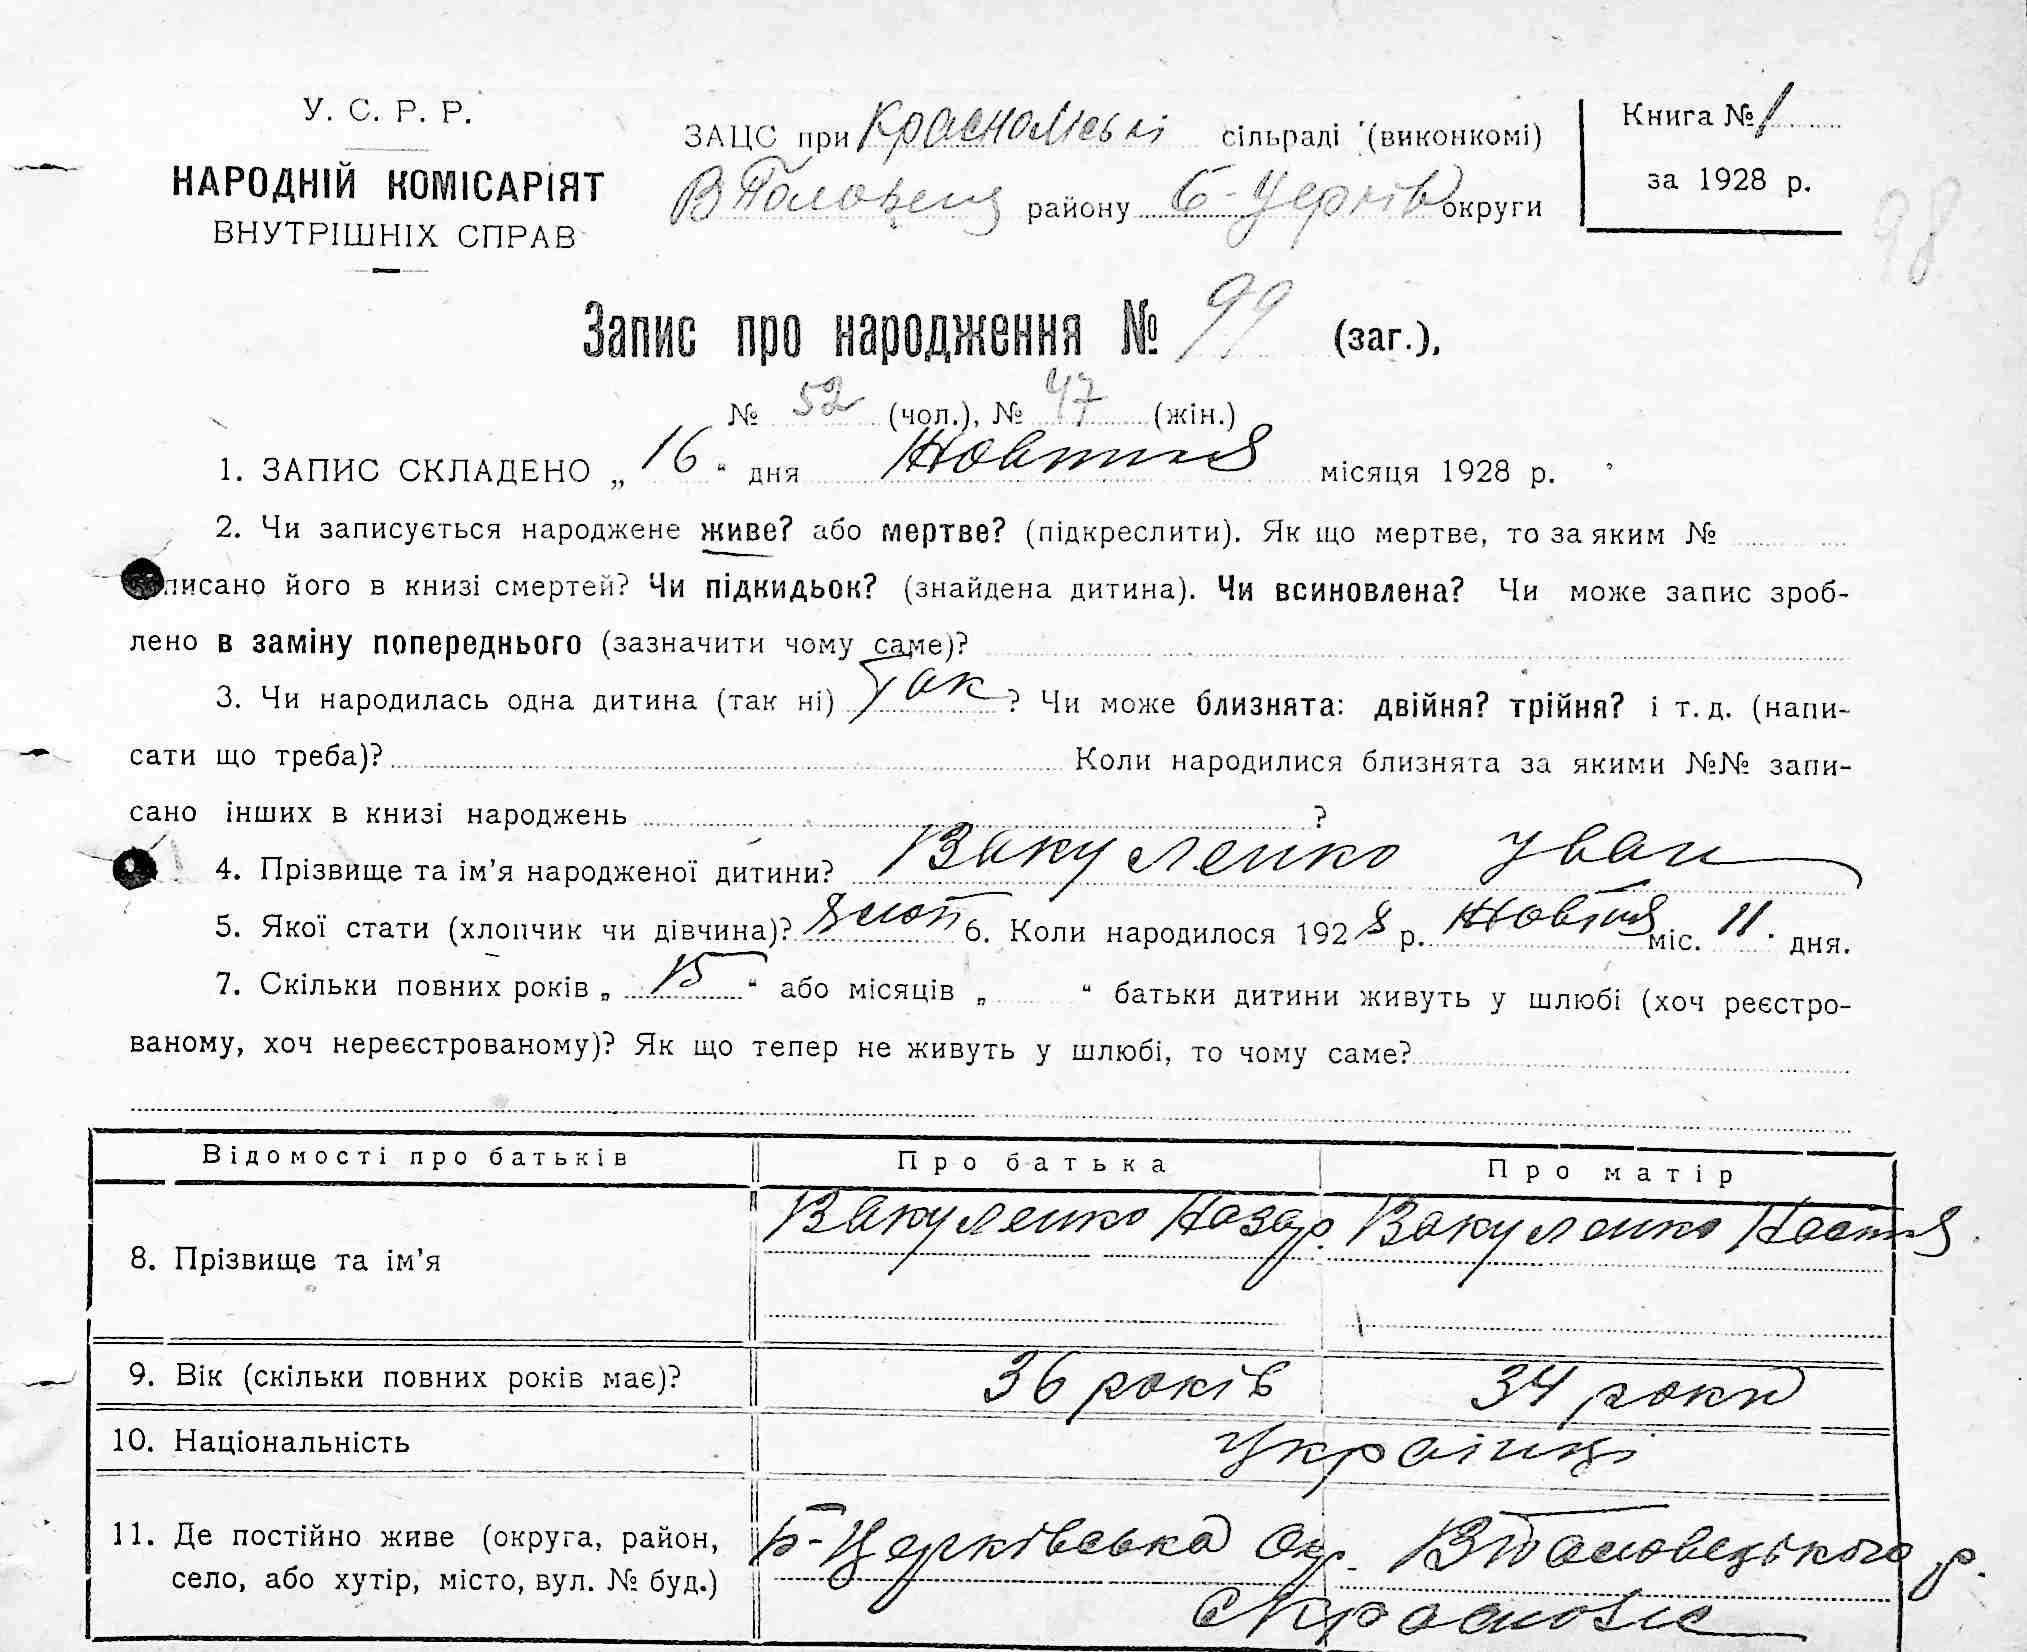 У. С. Р. Р.
НАРОДНІЙ КОМІСАРІЯТ
ВНУТРІШНІХ СПРАВ
ЗАЦС при сільраді (виконкомі)
В Половец району Б-Церків округи
Книга № 1
за 1928 р.
98
Запис про народження № 99 (заг.),
№ 52 (чол.), № 47 (жін.)
1. ЗАПИС СКЛАДЕНО „ 16 “ дня Жовтня місяця 1928 р.
2. Чи записується народжене живе? або мертве? (підкреслити). Як що мертве, то за яким №
записано його в книзі смертей? Чи підкидьок? (знайдена дитина). Чи всиновлена? Чи може запис зроб-
лено в заміну попереднього (зазначити чому саме)?
3. Чи народилась одна дитина (так ні) Так ? Чи може близнята: двійня? трійня? і т. д. (напи-
сати що треба)? Коли народилися близнята за якими №№ запи-
сано інших в книзі народжень ?
4. Прізвище та ім’я народженої дитини? Вакуленко Іван
5. Якої стати (хлопчик чи дівчина)? 6. Коли народилося 1928 р. Жовтня міс. 11 дня.
7. Скільки повних років „ 15 “ або місяців „ “ батьки дитини живуть у шлюбі (хоч реєстро-
ваному, хоч нереєстрованому)? Як що тепер не живуть у шлюбі, то чому саме?
Відомості про батьків Про батька Про матір
8. Прізвище та ім’я Вакуленко Назар. Вакуленко Настя
9. Вік (скільки повних років має)? 36 років 34 роки
10. Національність Українці
11. Де постійно живе (округа, район, Б-Церківська Окр. ВПоловецького р.
село, або хутір, місто, вул. № буд.)